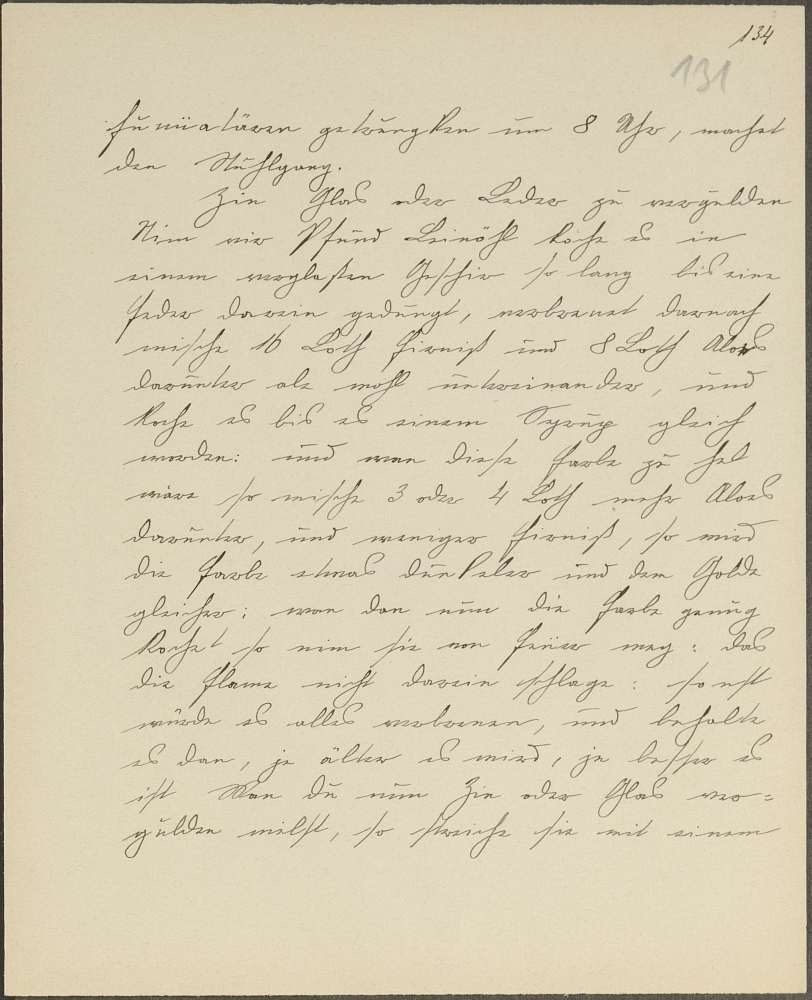 134
131
getrungken um 8 Uhr, machet
den Stuhlgang.
Zin Glas oder Leder zu vergulden
Nim vir Pfund Leinöhl koche es in
einem verglasten Geschir so lang bis eine
feder darein gedungt, verbrenet darnach
mische 16 Loth firniß und 8 Loth Aloes
darunter als wohl untereinander, und
koche es bis es einem Syrup gleich
worden: und wan diese farbe zu hel
wäre so mische 3 oder 4 Loth mehr Aloes
darunter, und weniger firniß, so wird
die farbe etwas dunkeler und dem Golde
gleicher; wan dan nun die farbe genug
kochet so nim sie von feuer weg: das
die flame nicht darein schlage: sonst
würde es alles verbrenen, und behalte
es dan, je älter es wird, je besser es
ist Wan du nun Zin oder Glas ver=
gulden wilst, so streiche sie mit einem